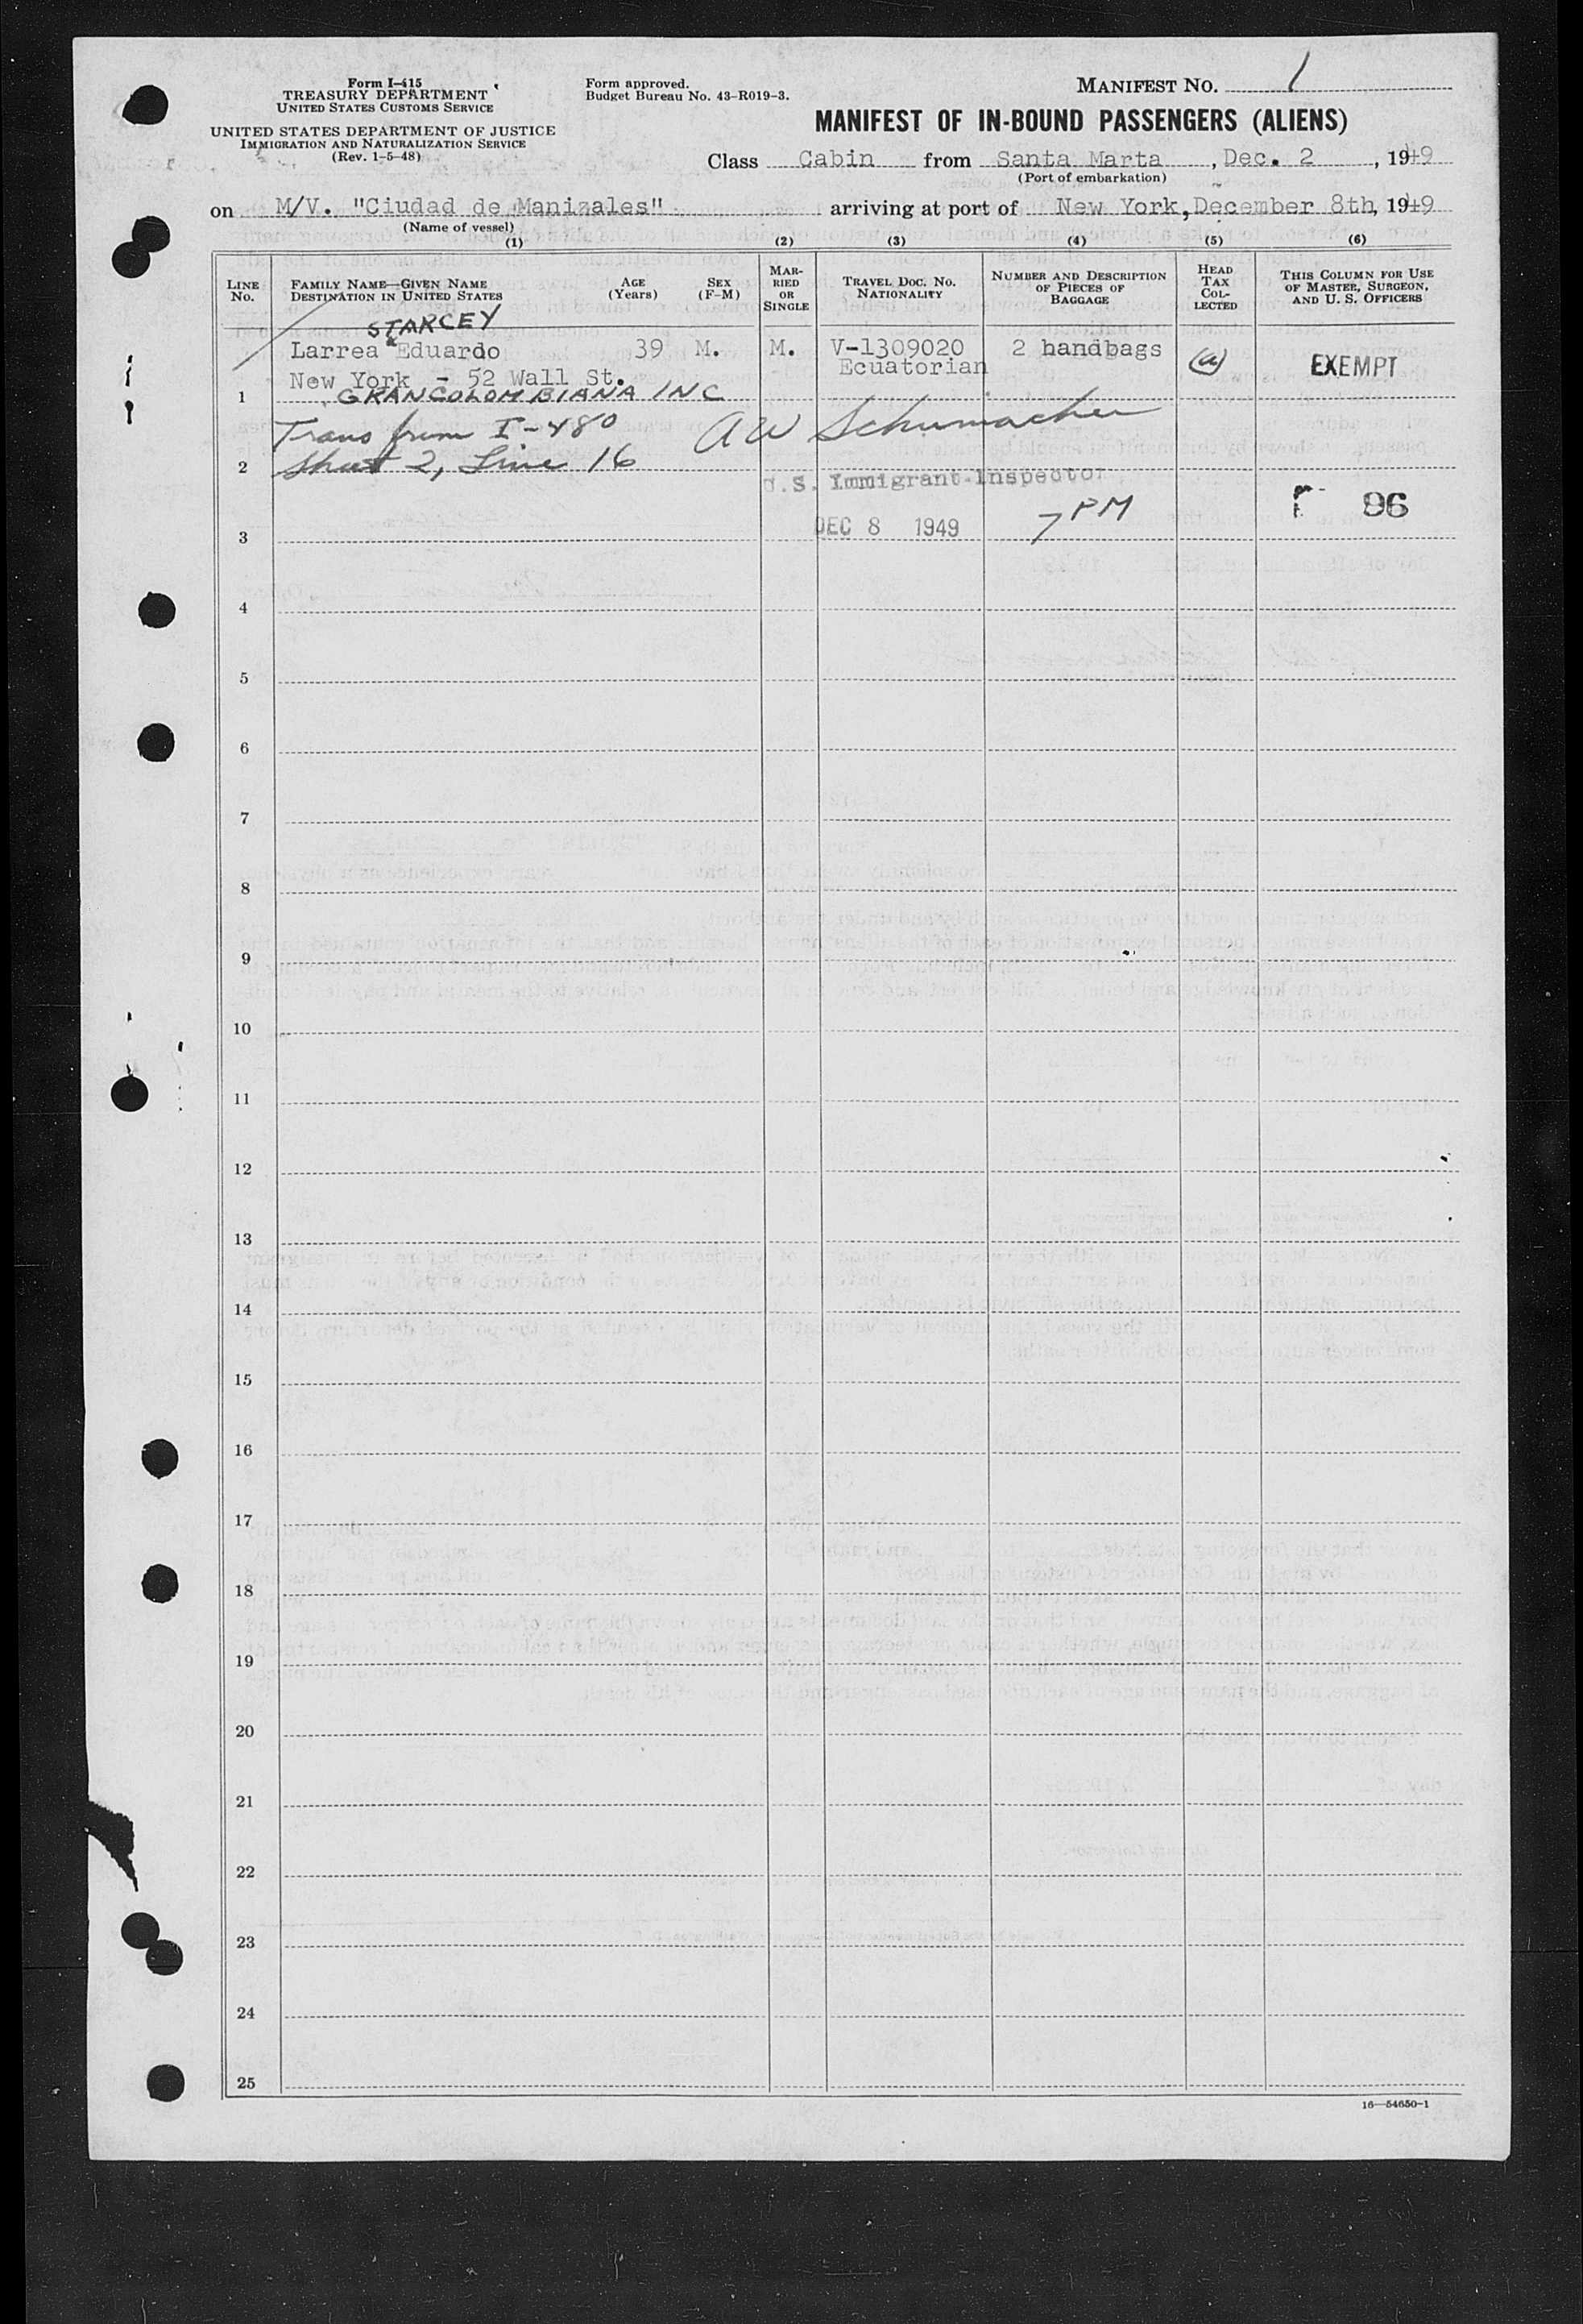 Form I-415
TREASURY DEPARTMENT
UNITED STATES CUSTOMS SERVICE
UNITED STATES DEPARTMENT OF JUSTICE
IMMIGRATION AND NATURALIZATION SERVICE
(Rev. 1-5-48)
Form approved.
Budget Bureau No. 43-R019-3.
MANIFEST NO. 1
MANIFEST OF IN-BOUND PASSENGERS (ALIENS)
Class Cabin from Santa Marta, Dec. 2, 1949
(Port of embarkation)
on M/V. "Ciudad de Manizales" arriving at port of New York, December 8th, 1949
(Name of vessel)
(1) (2) (3) (4) (5) (6)
LINE No. FAMILY NAME—GIVEN NAME DESTINATION IN UNITED STATES AGE (Years) SEX (F-M) MARRIED OR SINGLE TRAVEL DOC. NO. NATIONALITY NUMBER AND DESCRIPTION OF PIECES OF BAGGAGE HEAD TAX COLLECTED THIS COLUMN FOR USE OF MASTER, SURGEON, AND U. S. OFFICERS
STARCEY
Larrea & Eduardo 39 M. M. V-1309020 2 handbags (a) EXEMPT
Ecuatorian
New York - 52 Wall St.
1 GRANCOLOMBIANA INC
Trans from I-480 AW Schumacher
2 Sheet 2, Line 16
U.S. Immigrant Inspector
3 DEC 8 1949 7 PM 96
4
5
6
7
8
9
10
11
12
13
14
15
16
17
18
19
20
21
22
23
24
25
16—54650-1